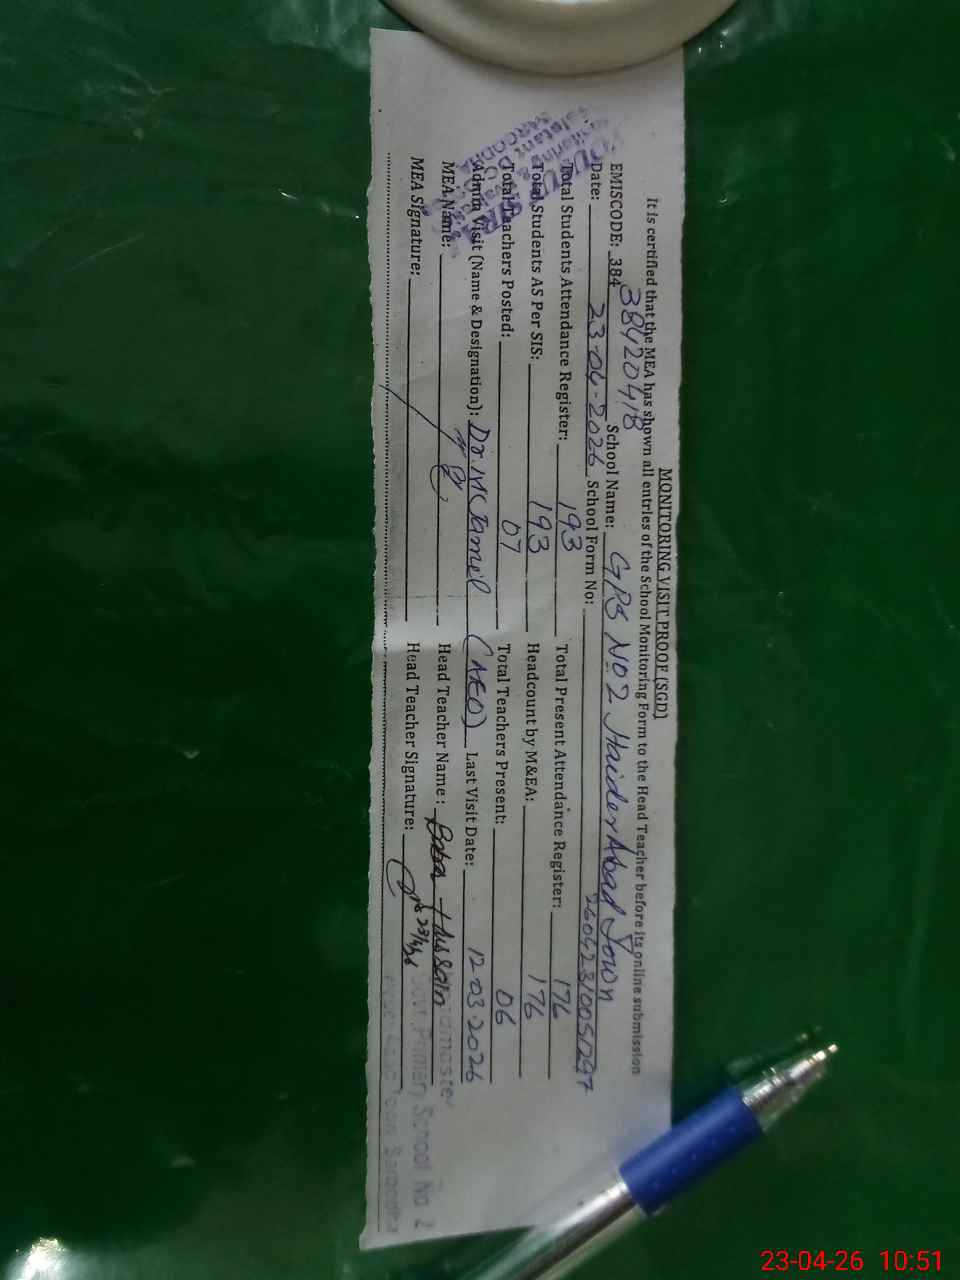 MONITORING VISIT PROOF (SGD)
It is certified that the MEA has shown all entries of the School Monitoring Form to the Head Teacher before its online submission
EMISCODE: 384 38420418 School Name: GPS No 2 HaiderAbad Town
Date: 23-04-2026 School Form No: 26042310051297
Total Students Attendance Register: 193 Total Present Attendance Register: 176
Total Students AS Per SIS: 193 Headcount by M&EA: 176
Total Teachers Posted: 07 Total Teachers Present: 06
Admin Visit (Name & Designation): Dr. M Jamil (AEO) Last Visit Date: 12-03-2026
MEA Name: Head Teacher Name: Babar Hussain
MEA Signature: Head Teacher Signature: 23/4/26
Govt. Primary School No 2
Town Sargodha
SARGODHA
23-04-26 10:51